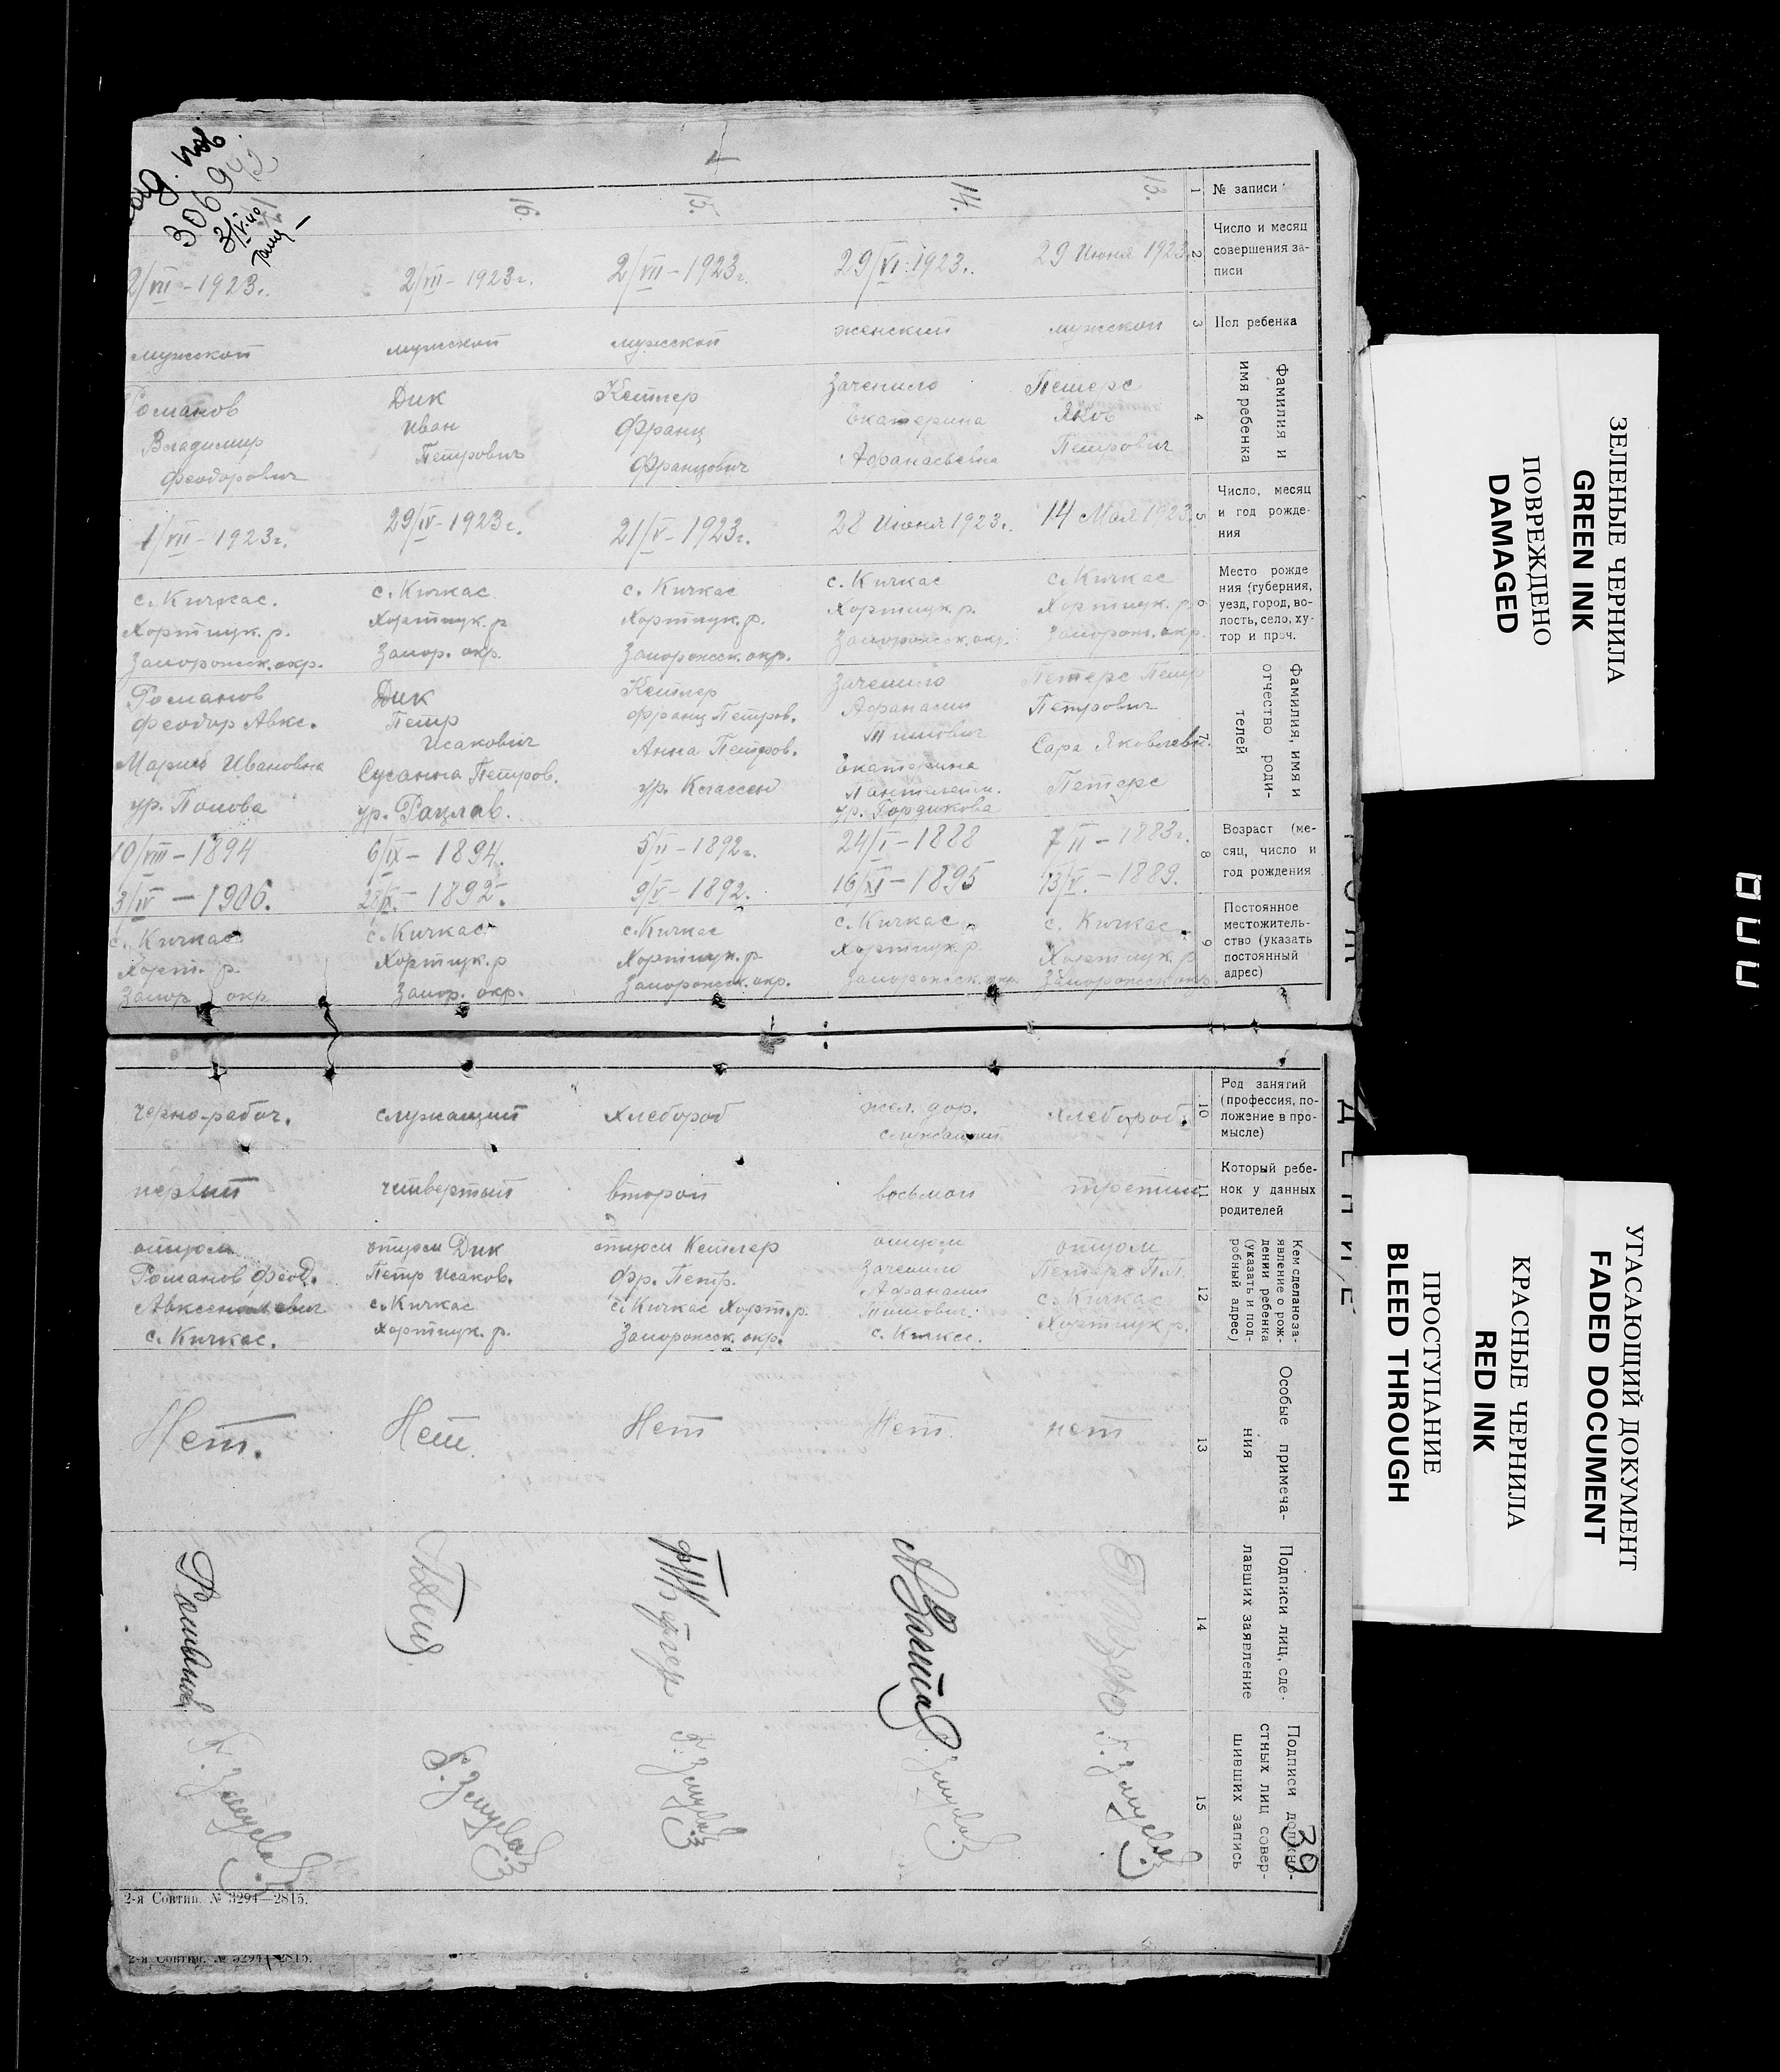 1
№ записи
2
Число и месяц
совершения за-
писи
3
Пол ребенка
4
Фамилия и
имя ребенка
5
Число, месяц
и год рожде-
ния
6
Место рожде
ния (губерния,
уезд, город, во-
лость, село, ху-
тор и проч.
7
Фамилия, имя и
отчество роди-
телей
8
Возраст (ме-
сяц, число и
год рождения
9
Постоянное
местожитель-
ство (указать
постоянный
адрес)
10
Род занятий
(профессия, по-
ложение в про-
мысле)
11
Который ребе-
нок у данных
родителей
12
Кем сделано за-
явление о рож-
дении ребенка
(указать и под-
робный адрес)
13
Особые примеча-
ния
14
Подписи лиц, сде-
лавших заявление
15
Подписи должно-
стных лиц совер-
шивших запись
39
13.
29 Июня 1923
мужской
Петерс
Яков
Петрович
14 Мая 1923
с. Кичкас
Хортицк. р.
Запорож. окр.
Петерс Петр
Петрович
Сара Яковлевн.
Петерс
7/II - 1883г.
13/V. - 1889.
с. Кичкас
Хортицк. р
Запорожск окр.
хлебороб.
третий
отцом
Петерс П.П.
с. Кичкас
Хортицк р.
нет
14.
29/VI-1923г.
женский
Зачепило
Екатерина
Афанасьевна
28 Июня 1923г.
с. Кичкас
Хортицк. р.
Запорожск. окр.
Зачепило
Афанасий
Титович
Екатерина
Пантелейм.
ур. Гордикова
24/I - 1888
16/XI - 1895
с. Кичкас
Хортицк. р.
Запорожск. окр.
жел. дор.
служащий.
восьмой
отцом
Зачепило
Афанасий
Титович.
с. Кичкас.
Нет.
15.
2/VII - 1923г.
мужской
Кетлер
Франц
Францович
21/V - 1923г.
с. Кичкас
Хортицк. р.
Запорожск. окр.
Кетлер
Франц Петров.
Анна Петров.
ур. Классен
5/II - 1892г.
9/V - 1892.
с. Кичкас
Хортицк. р.
Запорожск. окр.
хлебороб
второй
отцом Кетлер
Фр. Петр.
с. Кичкас Хорт. р.
Запорожск. окр.
Нет
16.
2/VII - 1923г.
мужской
Дик
Иван
Петрович
29/IV - 1923г.
с. Кичкас
Хортицк. р
Запор. окр.
Дик
Петр
Исакович
Сусанна Петров.
ур. Рацлав.
6/IX - 1894.
с. Кичкас
Хортицк. р
Запор. окр.
служащий
четвертый
отцом Дик
Петр Исаков.
с. Кичкас
Хортицк. р.
Нет.
2/VII - 1923г.
мужской
Романов
Владимир
Феодорович
1/VII - 1923г.
с. Кичкас.
Хортицк. р.
Запорожск. окр.
Романов
Феодор Авкс.
Мария Ивановна
ур. Попова
10/VIII - 1894
3/IV - 1906.
с. Кичкас
Хорт. р.
Запор. окр.
черно-рабоч.
первый
отцом
Романов Феод.
Авксентиевич
с. Кичкас.
Нет.
Романов
2-я Совтип. № 3294—2815.
2-я Совтип. № 3294—2815.
ЗЕЛЕНЫЕ ЧЕРНИЛА
GREEN INK
ПОВРЕЖДЕНО
DAMAGED
УГАСАЮЩИЙ ДОКУМЕНТ
FADED DOCUMENT
КРАСНЫЕ ЧЕРНИЛА
RED INK
ПРОСТУПАНИЕ
BLEED THROUGH